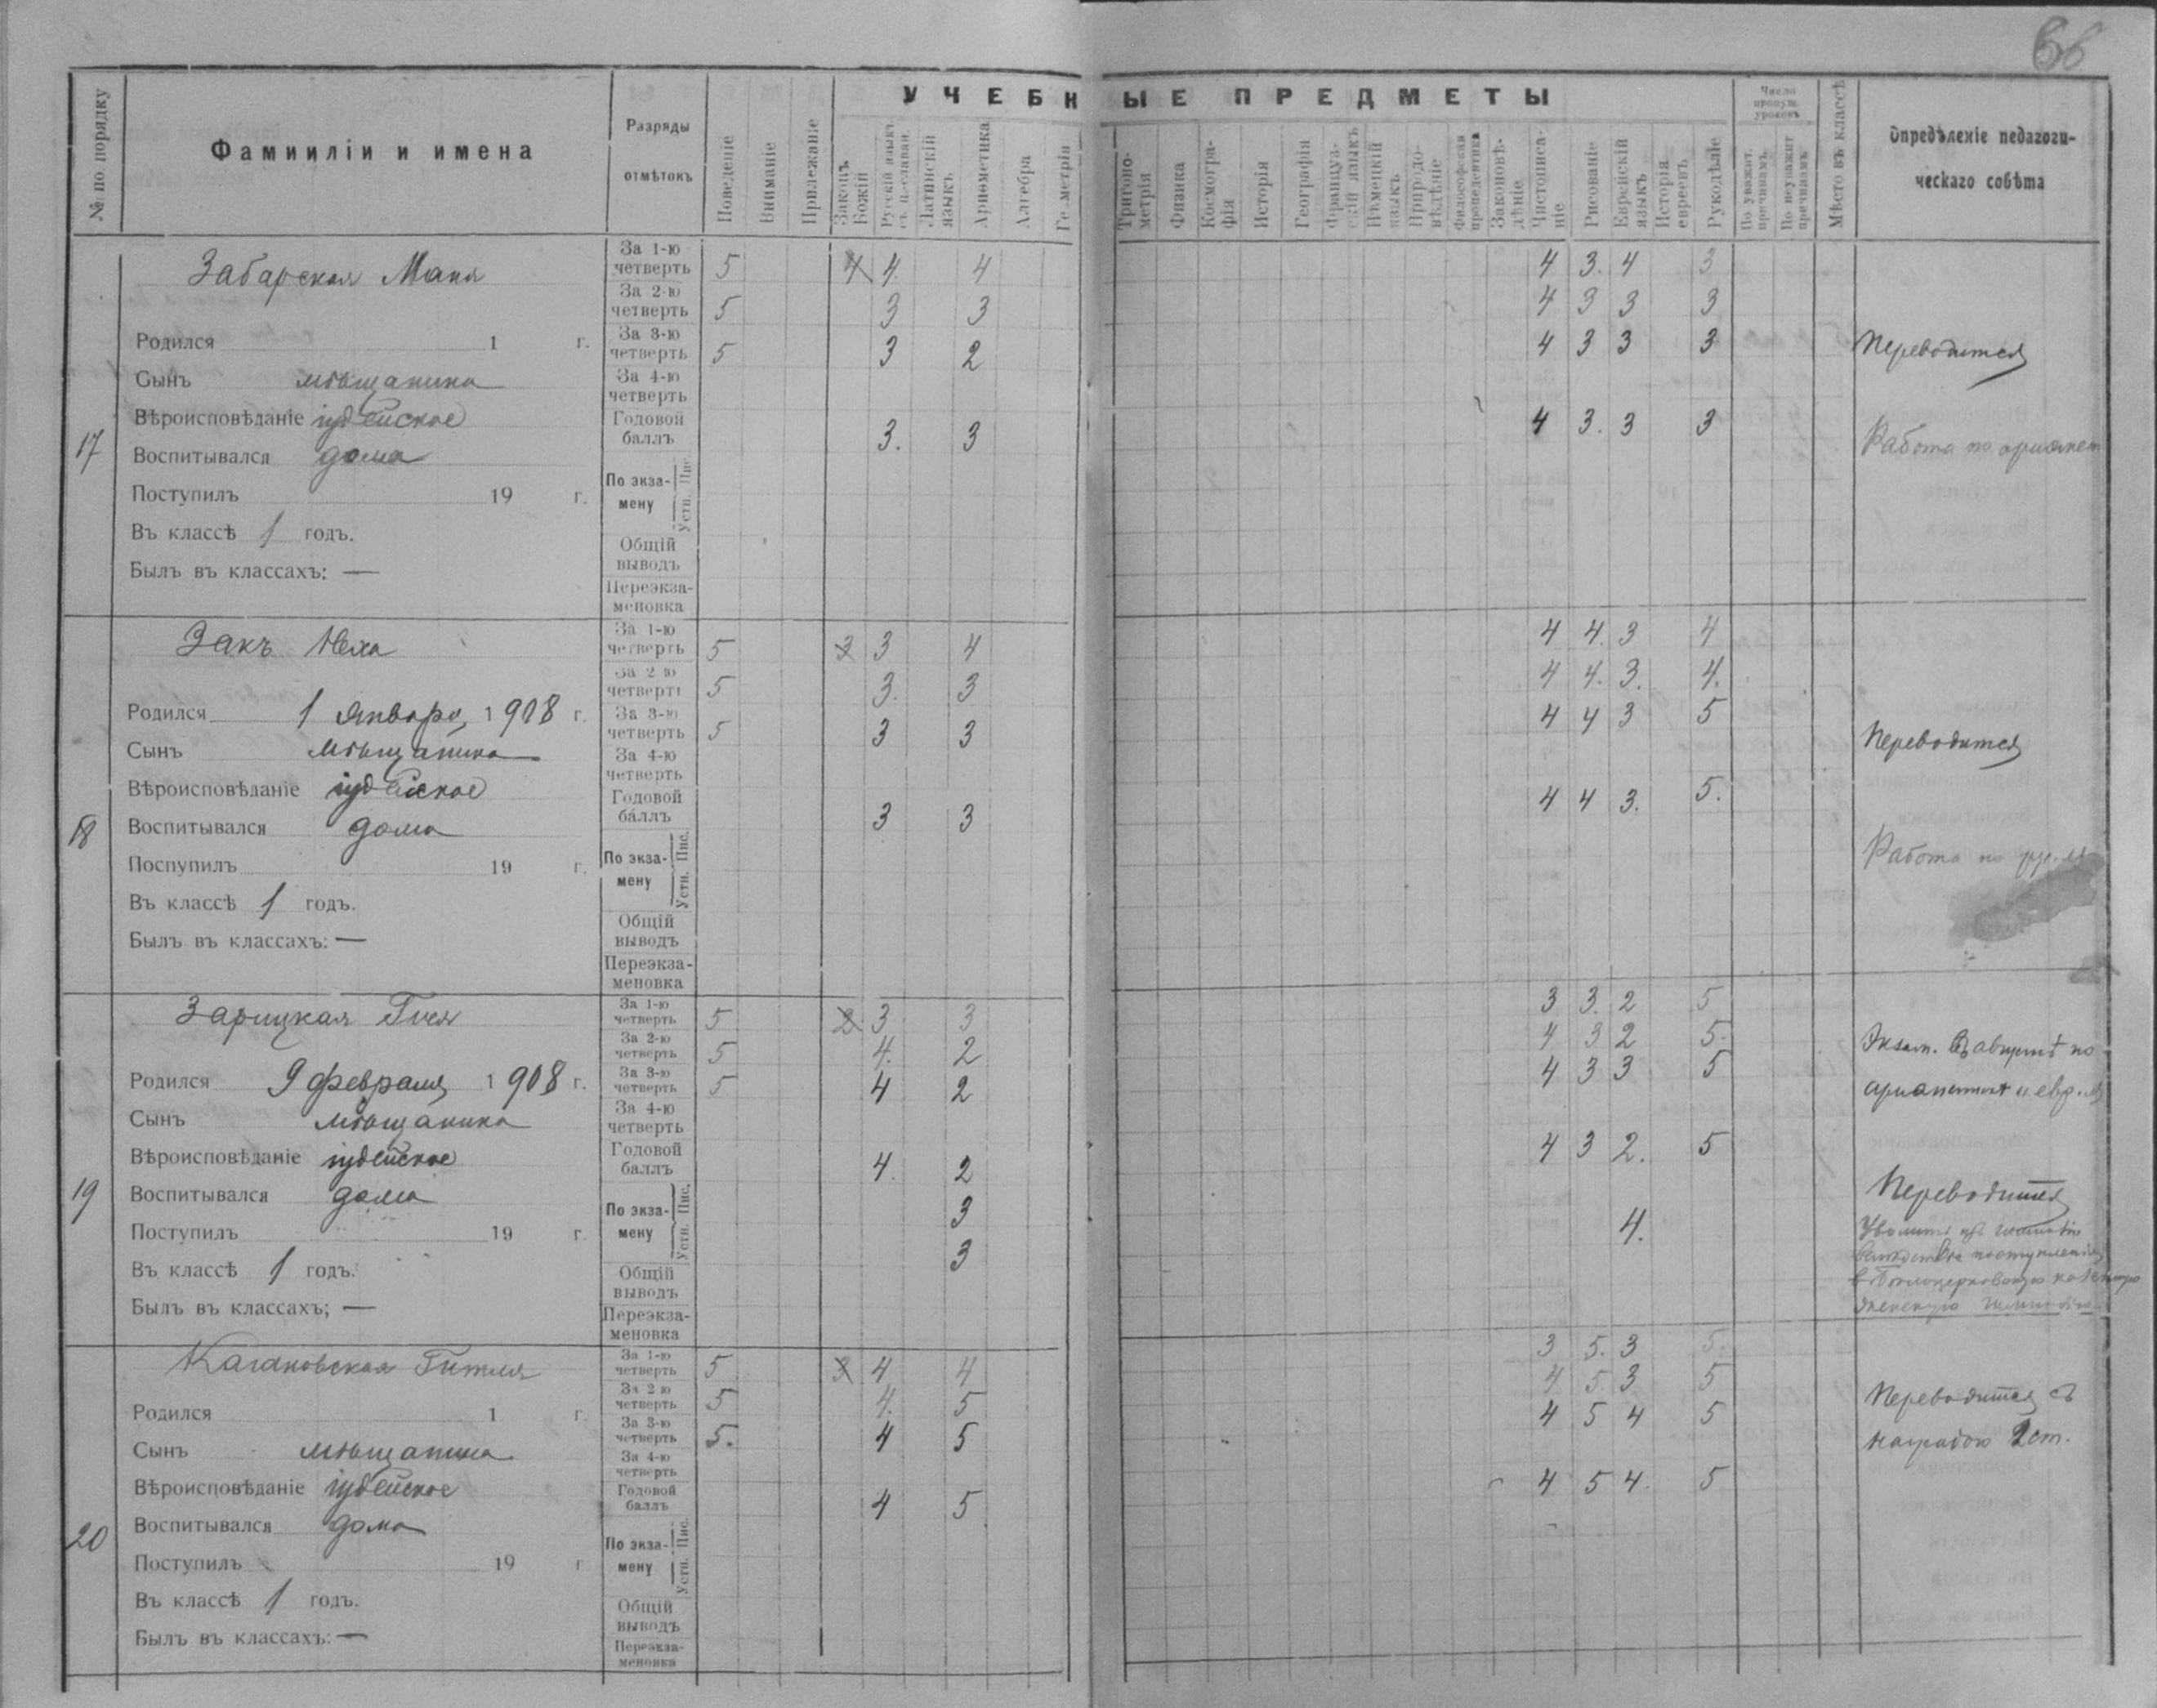 66
УЧЕБНЫЕ ПРЕДМЕТЫ
№ по порядку
Фамииліи и имена
Разряды отмѣтокъ
Поведеніе
Вниманіе
Прилежаніе
Законъ Божій
Русскій языкъ съ ц.-славян
Латинскій языкъ
Арифметика
Алгебра
Геометрія
Тригонометрія
Физика
Космографія
Исторія
Географія
Французскій языкъ
Нѣмецкій языкъ
Природовѣдѣніе
Философская пропедевтика
Законовѣдѣніе
Чистописаніе
Рисованіе
Еврейскій языкъ
Исторія евреевъ
Рукодѣліе
Число пропущ. уроковъ
По уважит. причинамъ
По неуважит причинамъ
Мѣсто въ классѣ
Опредѣленіе педагогическаго совѣта
17
Забарская Маня
Родился 1 г.
Сынъ мѣщанина
Вѣроисповѣданіе іудейское
Воспитывался дома
Поступилъ 19 г.
Въ классѣ 1 годъ.
Былъ въ классахъ: —
За 1-ю четверть 5 4 4 4 4 3. 4 3
За 2-ю четверть 5 3 3 4 3 3 3
За 3-ю четверть 5 3 2 4 3 3 3
За 4-ю четверть
Годовой баллъ 3. 3 4 3. 3 3
По экзамену Пис. Устн.
Общій выводъ
Переэкзаменовка
Переводится
Работа по арифмет
18
Закъ Неха
Родился 1 января 1908 г.
Сынъ мѣщанина
Вѣроисповѣданіе іудейское
Воспитывался дома
Поспупилъ 19 г.
Въ классѣ 1 годъ.
Былъ въ классахъ: —
За 1-ю четверть 5 3 3 4 4 4. 3 4
За 2-ю четверть 5 3. 3 4 4. 3. 4.
За 3-ю четверть 5 3 3 4 4 3 5
За 4-ю четверть
Годовой баллъ 3 3 4 4 3. 5.
По экзамену Пис. Устн.
Общій выводъ
Переэкзаменовка
Переводится
Работа по
19
Зарицкая Гися
Родился 9 февраля 1908 г.
Сынъ мѣщанина
Вѣроисповѣданіе іудейское
Воспитывался дома
Поступилъ 19 г.
Въ классѣ 1 годъ.
Былъ въ классахъ; —
За 1-ю четверть 5 2 3 3 3 3. 2 5
За 2-ю четверть 5 4. 2 4 3 2 5.
За 3-ю четверть 5 4 2 4 3 3 5
За 4-ю четверть
Годовой баллъ 4. 2 4 3 2. 5
По экзамену Пис. 3 4.
Устн. 3
Общій выводъ
Переэкзаменовка
Экзам. въ августѣ по
арифметикѣ и евр. яз
Переводится
вслѣдствіе поступленія
в Бѣлоцерковскую
женскую гимназію
20
Кагановская Гитля
Родился 1 г.
Сынъ мѣщанина
Вѣроисповѣданіе іудейское
Воспитывался дома
Поступилъ 19 г
Въ классѣ 1 годъ.
Былъ въ классахъ: —
За 1-ю четверть 5 3 4 4 3 5. 3 5.
За 2-ю четверть 5 4. 5 4 5 3 5
За 3-ю четверть 5. 4 5 4 5 4 5
За 4-ю четверть
Годовой баллъ 4 5 4 5 4. 5
По экзамену Пис. Устн.
Общій выводъ
Переэкзаменовка
Переводится съ
наградою 2 ст.